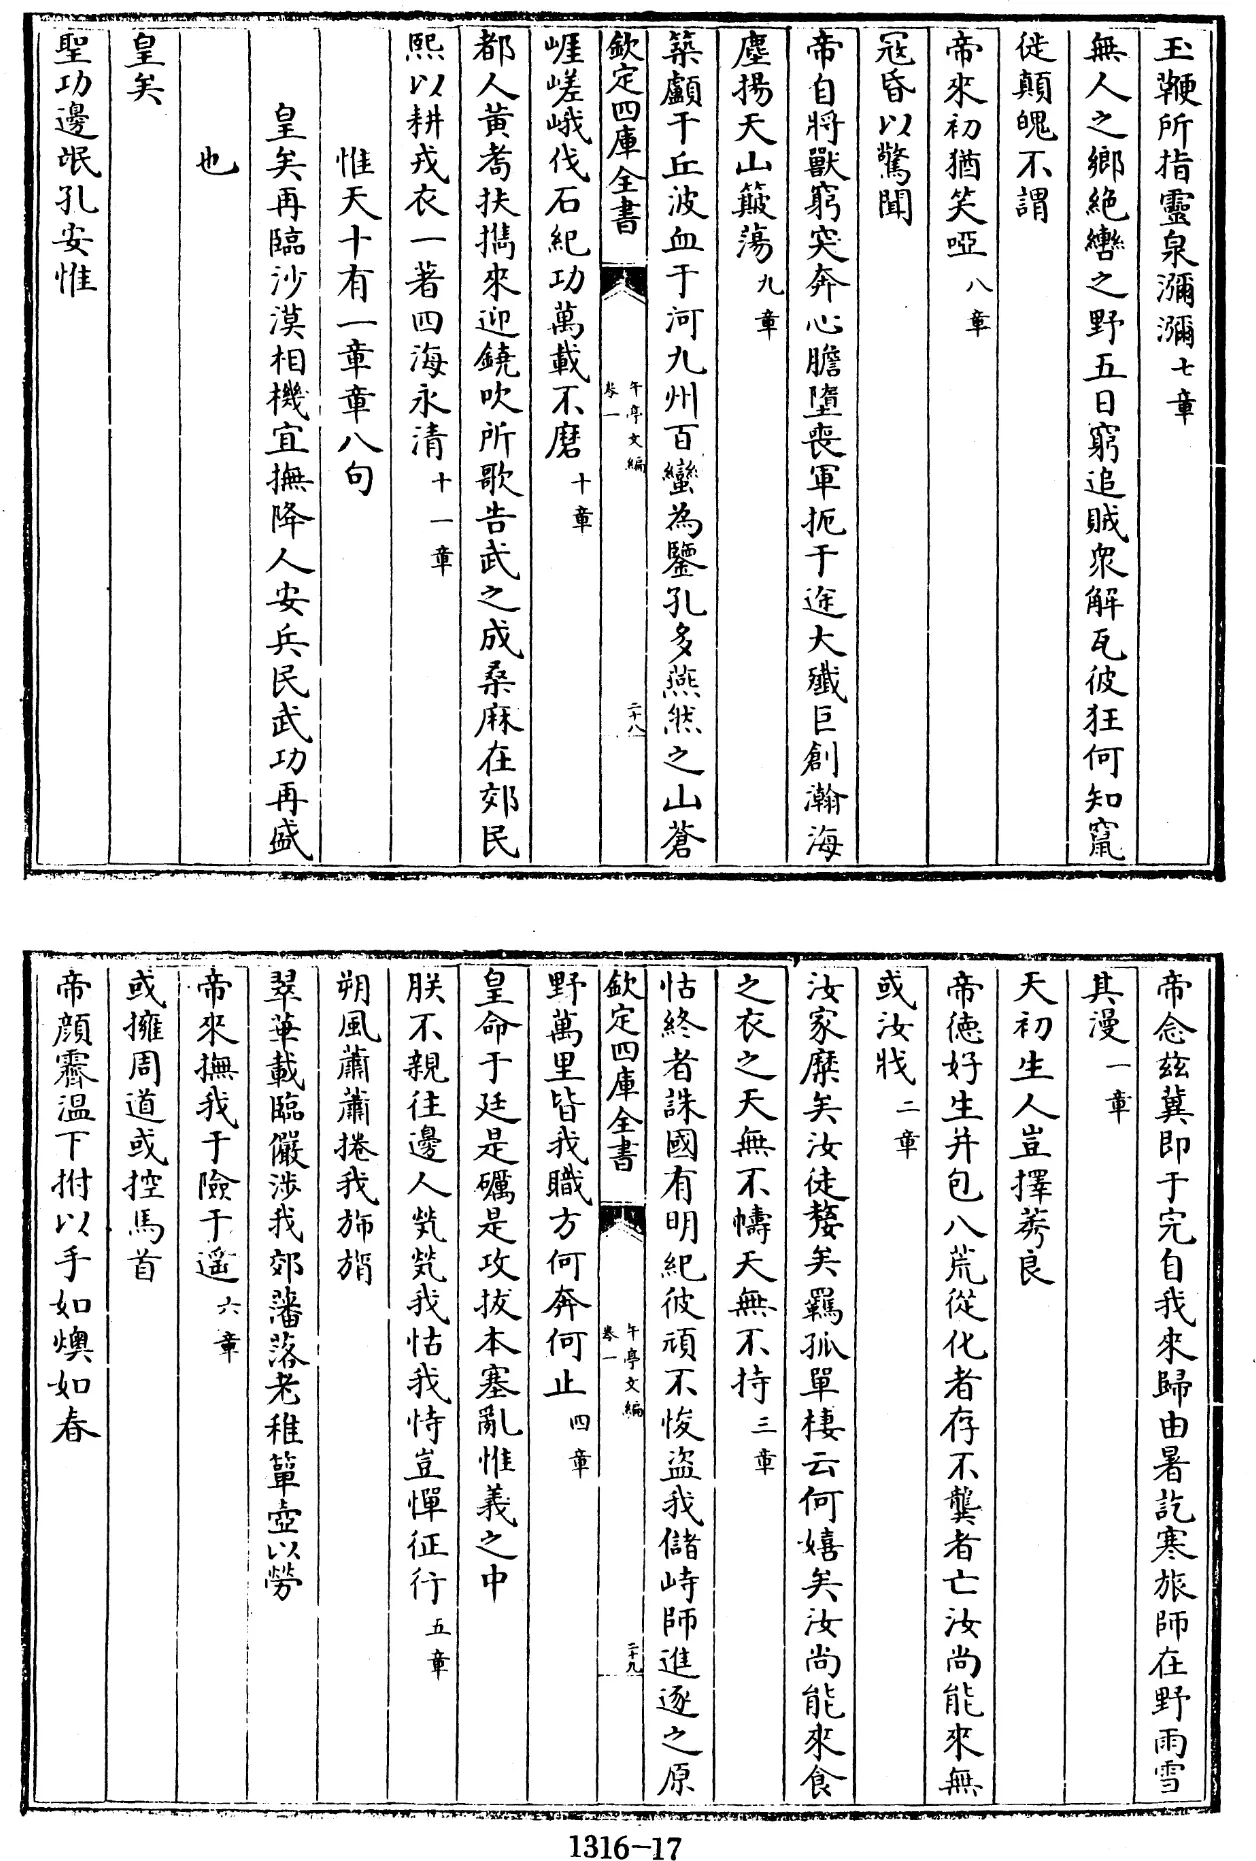 玉鞭所指靈泉瀰瀰七章
無人之鄉絶巒之野五日窮追賊衆解瓦彼狂何知竄
徙顛魄不謂
帝來初猶笑啞八章
寇昏以驚聞
帝自將獸窮突奔心膽墮喪軍扼于途大殱巨創瀚海
塵揚天山簸蕩九章
築顱于丘波血于河九州百蠻為鑒孔多燕然之山蒼
欽定四庫全書
午亭文編
卷一
二十八
崕嵯峨伐石紀功萬載不磨十章
都人黄耉扶擕來迎鐃吹所歌告武之成桑麻在郊民
熙以耕戎衣一著四海永清十一章
惟天十有一章章八句
皇矣再臨沙漠相機宜撫降人安兵民武功再盛
也
皇矣
聖功邊氓孔安惟
帝念兹冀即于完自我來歸由暑訖寒旅師在野雨雪
其漫一章
天初生人豈擇莠良
帝徳好生并包八荒從化者存不龔者亡汝尚能來無
或汝戕二章
汝家糜矣汝徒嫠矣羈孤單棲云何嬉矣汝尚能來食
之衣之天無不幬天無不持三章
怙終者誅國有明紀彼頑不悛盜我儲峙師進逐之原
欽定四庫全書
午亭文編
卷一
二十九
野萬里皆我職方何奔何止四章
皇命于廷是礪是攻拔本塞亂惟義之中
朕不親往邊人煢煢我怙我恃豈憚征行五章
朔風蕭蕭捲我斾旓
翠華載臨儼涉我郊藩落老稚簞壺以勞
帝來撫我于險于遥六章
或擁周道或控馬首
帝顔霽温下拊以手如燠如春
1316-17